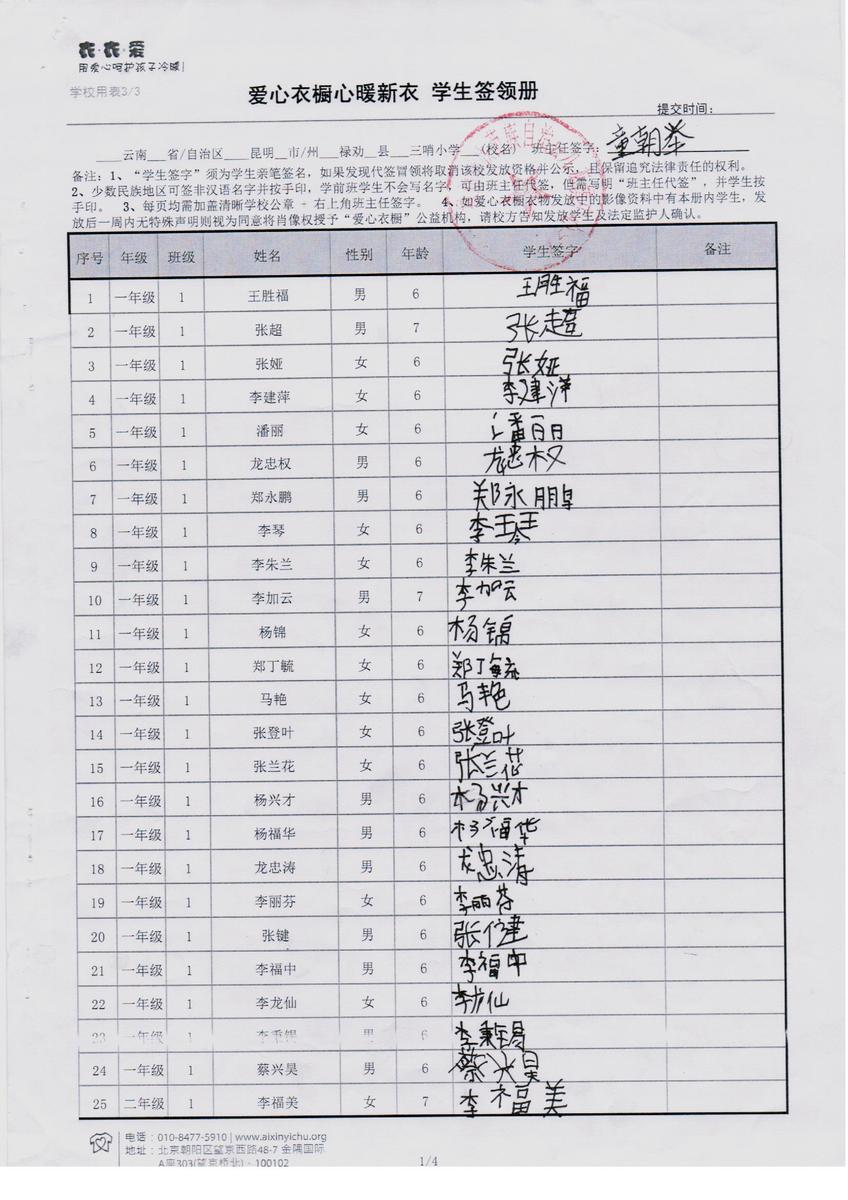 衣·衣·爱
用爱心呵护孩子冷暖!
学校用表3/3
爱心衣橱心暖新衣 学生签领册
提交时间:
云南 省/自治区 昆明 市/州 禄劝 县 三哨小学 (校名) 班主任签字: 童朝举
备注: 1、“学生签字”须为学生亲笔签名, 如果发现代签冒领将取消该校发放资格并公示, 且保留追究法律责任的权利。
2、少数民族地区可签非汉语名字并按手印, 学前班学生不会写名字, 可由班主任代签, 但需写明“班主任代签”, 并学生按
手印。 3、每页均需加盖清晰学校公章 + 右上角班主任签字。 4、如爱心衣橱衣物发放中的影像资料中有本册内学生, 发
放后一周内无特殊声明则视为同意将肖像权授予“爱心衣橱”公益机构, 请校方告知发放学生及法定监护人确认。
序号 年级 班级 姓名 性别 年龄 学生签字 备注
1 一年级 1 王胜福 男 6 王胜福
2 一年级 1 张超 男 7 张超
3 一年级 1 张娅 女 6 张娅
4 一年级 1 李建萍 女 6 李建萍
5 一年级 1 潘丽 女 6 潘丽
6 一年级 1 龙忠权 男 6 龙忠权
7 一年级 1 郑永鹏 男 6 郑永鹏
8 一年级 1 李琴 女 6 李琴
9 一年级 1 李朱兰 女 6 李朱兰
10 一年级 1 李加云 男 7 李加云
11 一年级 1 杨锦 女 6 杨锦
12 一年级 1 郑丁毓 女 6 郑丁毓
13 一年级 1 马艳 女 6 马艳
14 一年级 1 张登叶 女 6 张登叶
15 一年级 1 张兰花 女 6 张兰花
16 一年级 1 杨兴才 男 6 杨兴才
17 一年级 1 杨福华 男 6 杨福华
18 一年级 1 龙忠涛 男 6 龙忠清
19 一年级 1 李丽芬 女 6 李丽芬
20 一年级 1 张键 男 6 张健
21 一年级 1 李福中 男 6 李福中
22 一年级 1 李龙仙 女 6 李龙仙
23 一年级 1 李秉锡 男 6 李秉锡
24 一年级 1 蔡兴昊 男 6 蔡兴昊
25 二年级 1 李福美 女 7 李福美
电话: 010-8477-5910 | www.aixinyichu.org
地址: 北京朝阳区望京西路48-7 金隅国际
A座303(望京桥北) · 100102
1/4